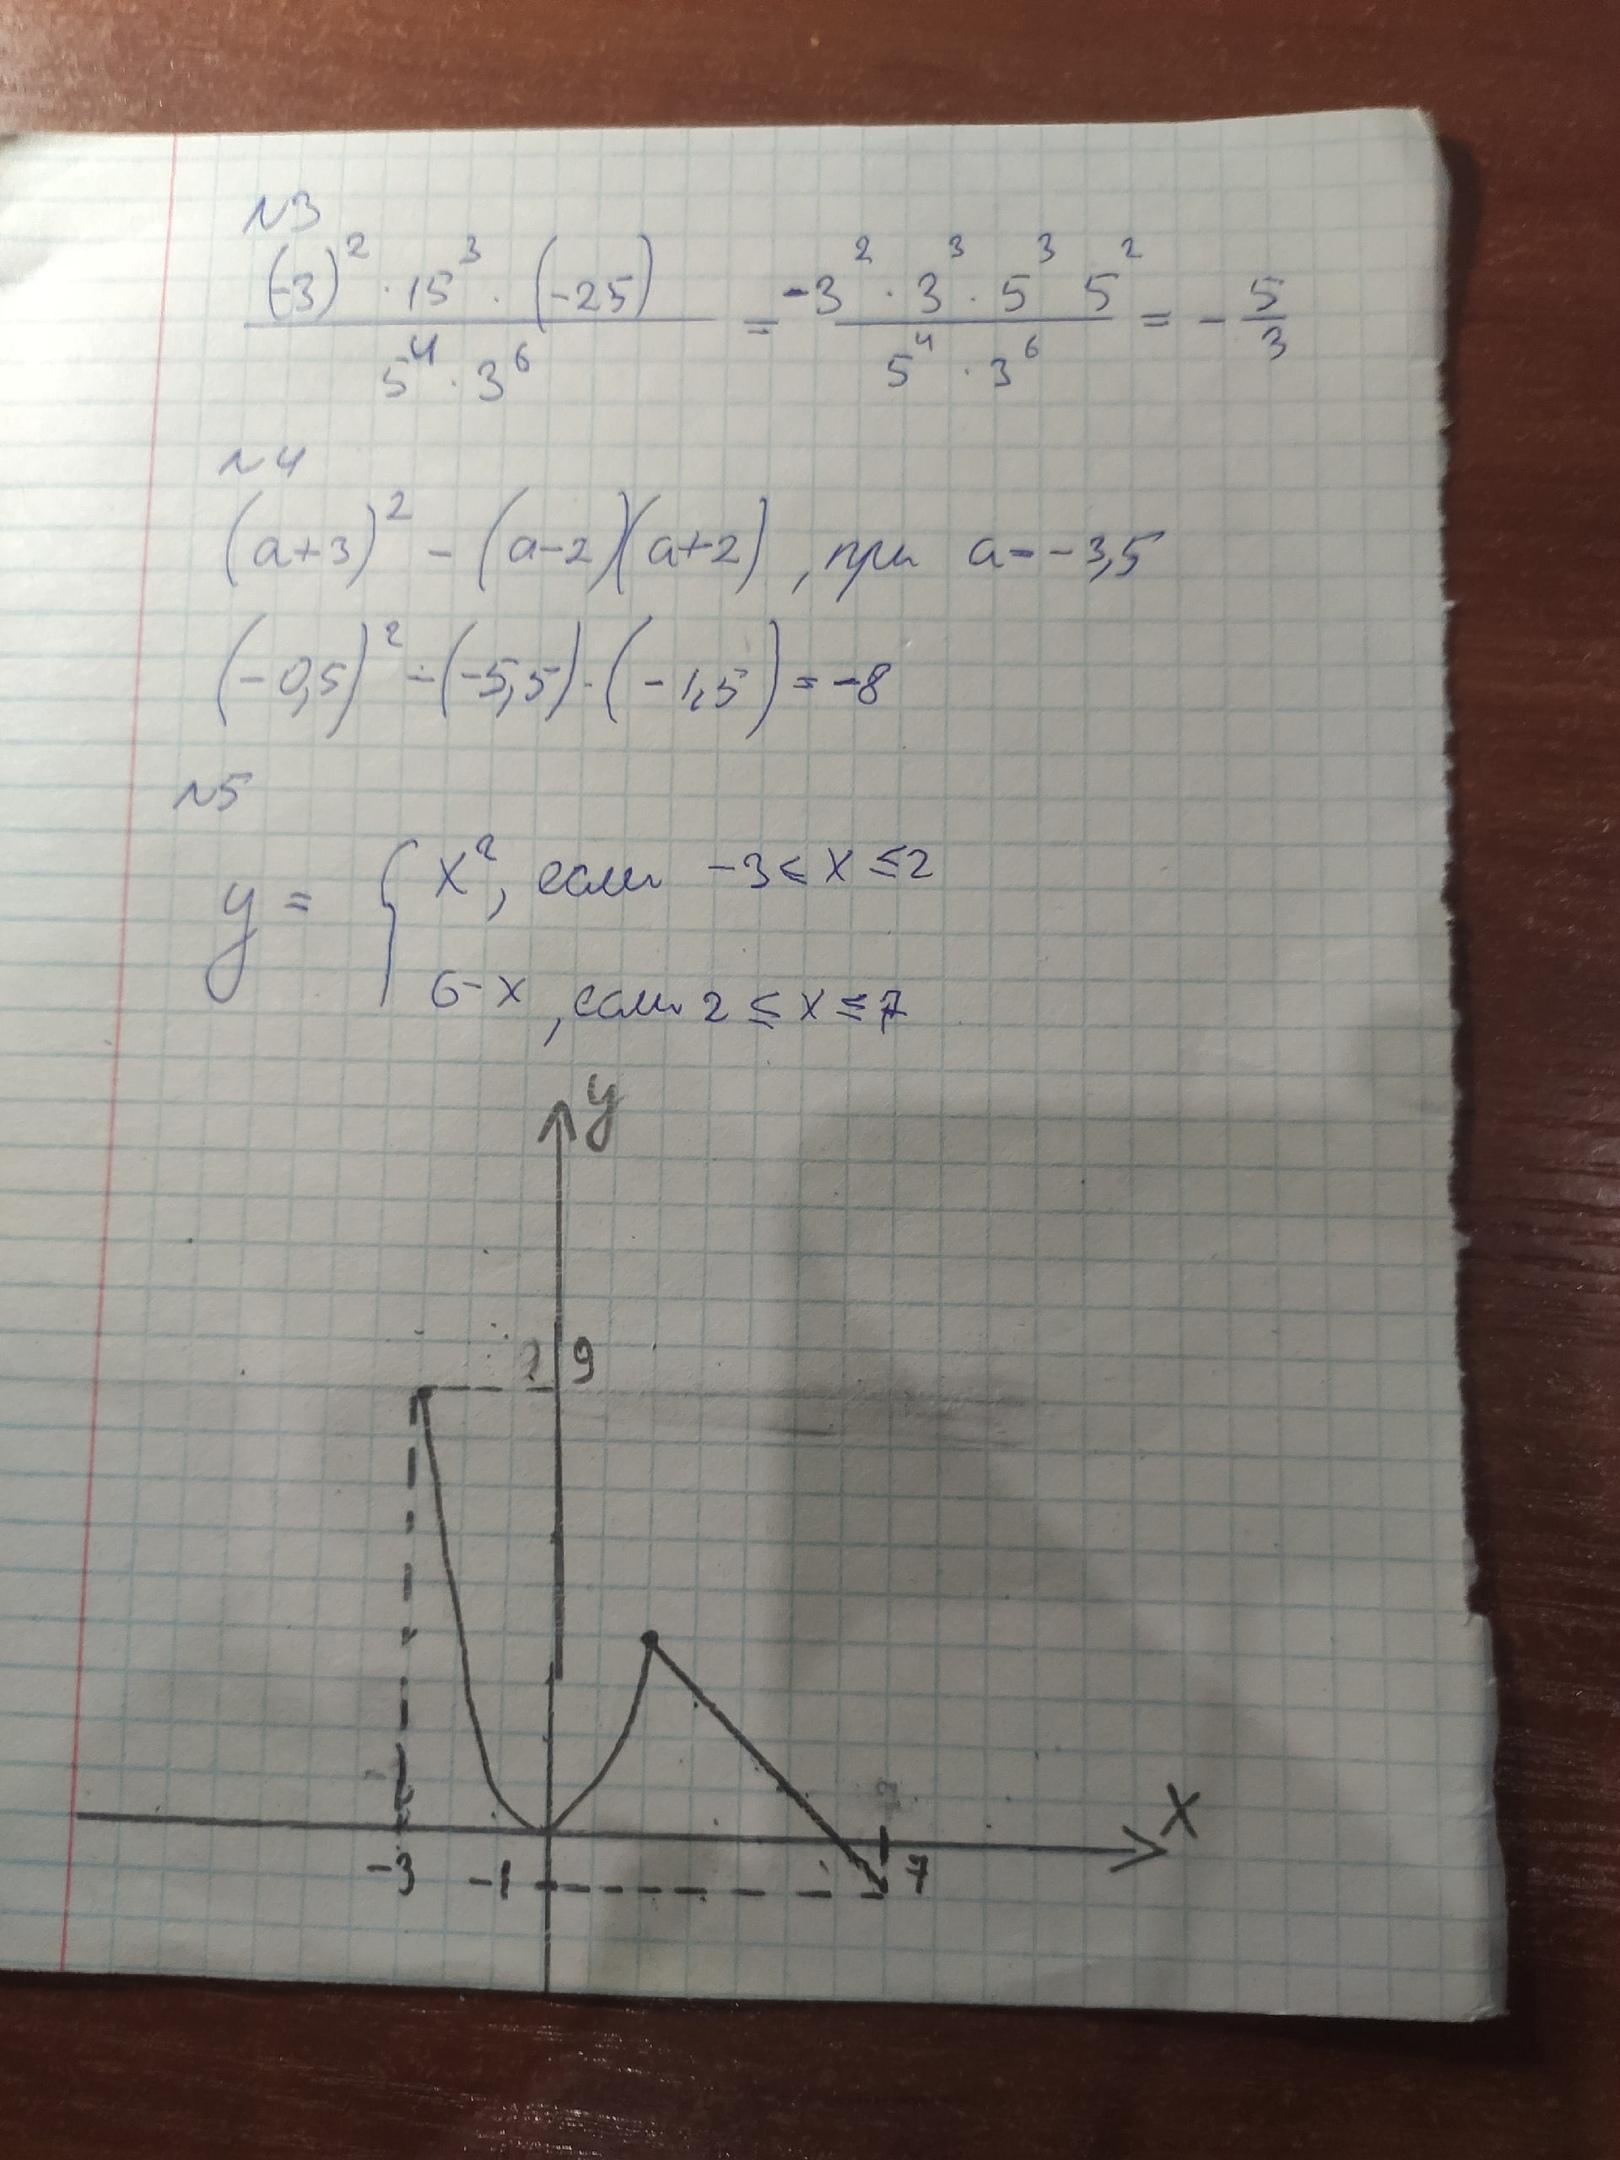 №3
(-3)² · 15³ · (-25) / 5⁴ · 3⁶ = -3² · 3³ · 5³ 5² / 5⁴ · 3⁶ = - 5/3
№4
(a+3)² - (a-2)(a+2), при a=-3,5
(-0,5)² - (-5,5) · (-1,5) = -8
№5
y = { x², если -3 ≤ x ≤ 2
6-x, если 2 ≤ x ≤ 7
y
9
x
-3 -1 7